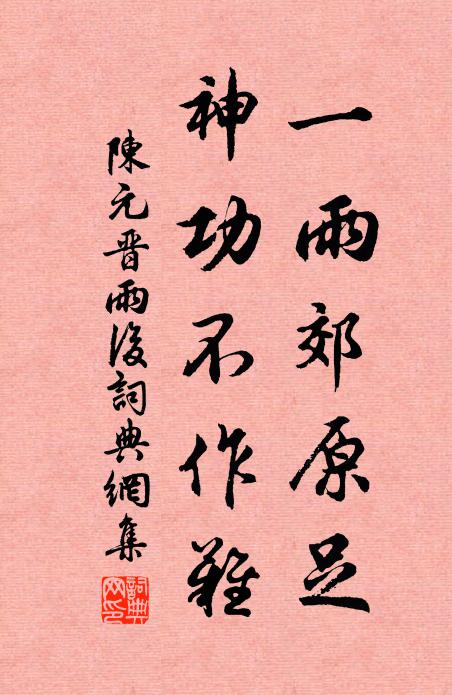 一雨郊原足
神功不作難
陳元晋雨後詞典網集
詞典網印